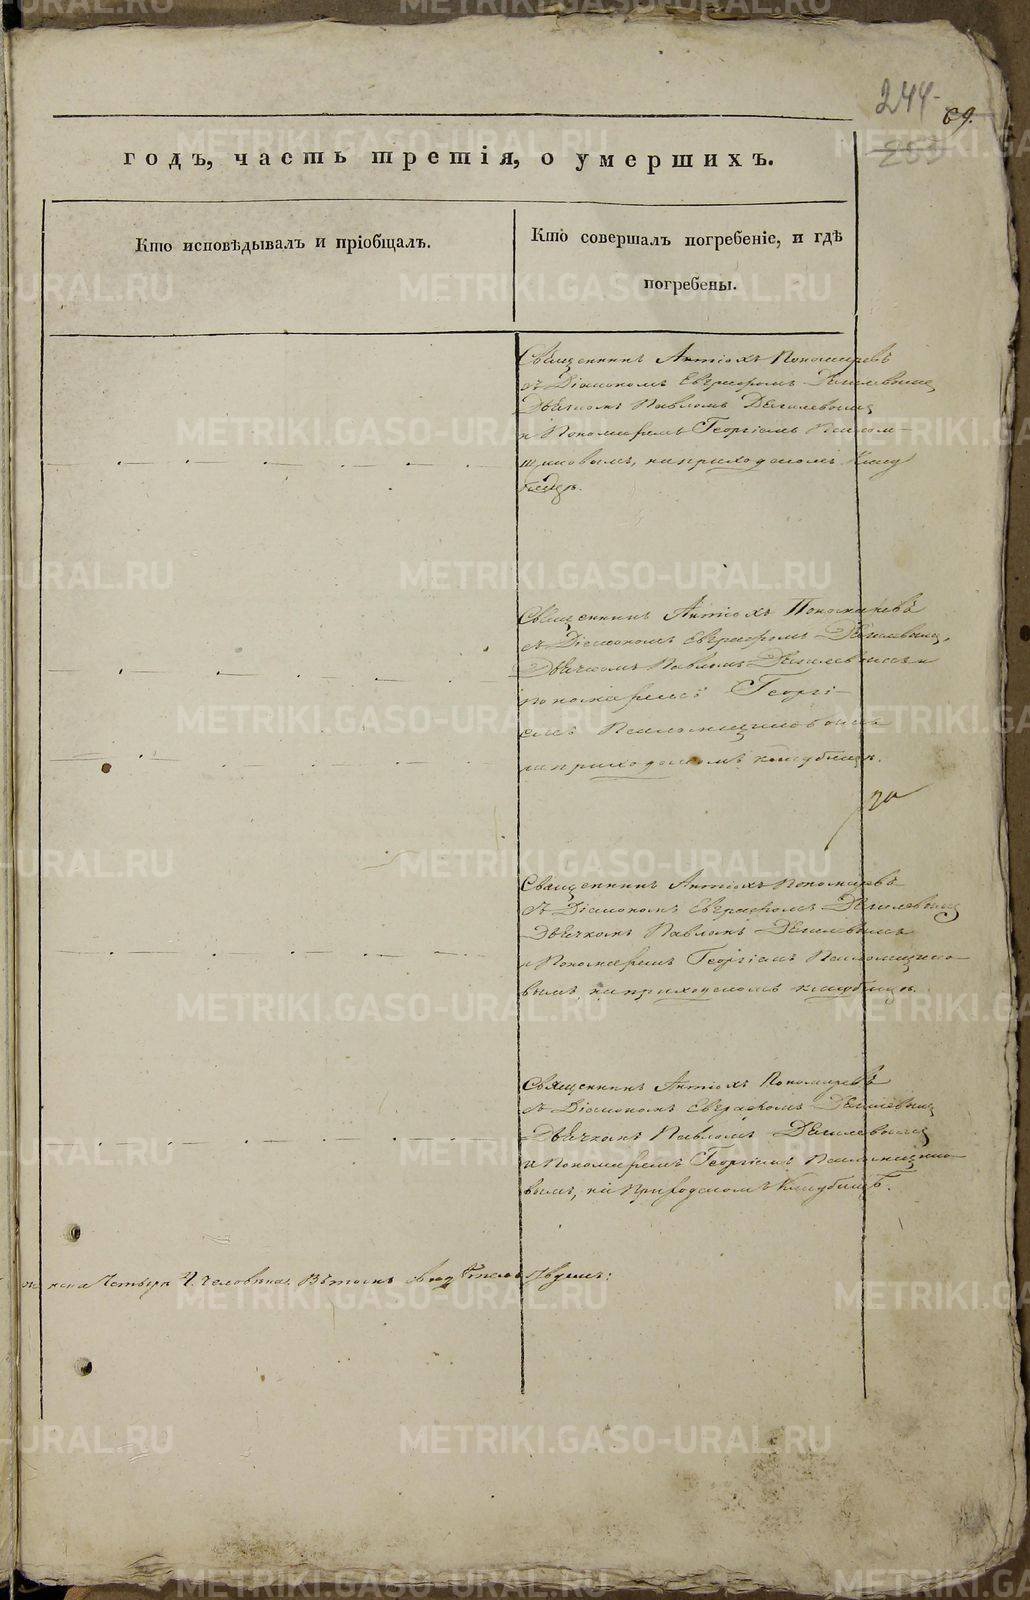 244
69.
годъ, часть третія, о умершихъ.
Кто исповѣдывалъ и пріобщалъ.
Кто совершалъ погребеніе, и гдѣ
погребены.
Священникъ Антіохъ Пономаревъ
съ Діакономъ Евграфомъ
Дьячкомъ Павломъ Дягилевымъ
и Пономаремъ Георгіемъ Псалом-
щиковымъ, на приходскомъ Клад
бищѣ.
Священникъ Антіохъ Пономаревъ
съ Діакономъ Евграфомъ Дягилевымъ,
Дьячкомъ Павломъ Дягилевымъ и
пономаремъ Георгі-
емъ Псаломщиковымъ
на приходскомъ кладбищѣ.
Священникъ Антіохъ Пономаревъ
съ Діакономъ Евграфомъ Дягилевымъ
Дьячкомъ Павломъ Дягилевымъ
и Пономаремъ Георгіемъ Псаломщико-
вымъ, на приходскомъ кладбищѣ.
Священникъ Антіохъ Пономаревъ
съ Діакономъ Евграфомъ Дягилевымъ
Дьячкомъ Павломъ Дягилевымъ
и Пономаремъ Георгіемъ Псаломщико-
вымъ, на Приходскомъ Кладбищѣ.
METRIKI.GASO-URAL.RU